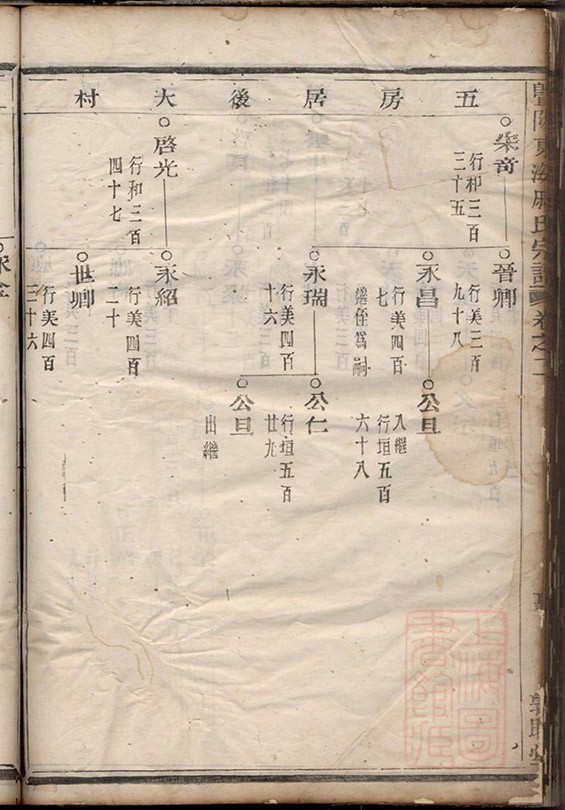 暨陽東海戚氏宗譜 卷之二
五房居後大村
崇奇
行和三百
三十五
晉卿
行美三百
九十八
永昌
行美四百
七
繼侄爲嗣
公旦
入繼
行垣五百
六十八
永瑞
行美四百
十六
公仁
行垣五百
廿九
公旦
出繼
啓光
行和三百
四十七
永紹
行美四百
二十
世卿
行美四百
三十六
永金
上海圖
書館藏